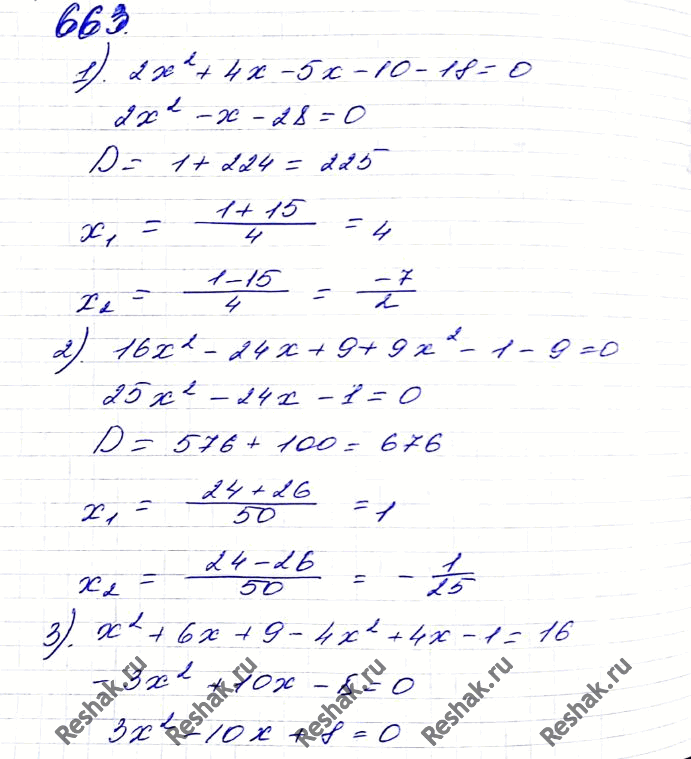 663.
1). 2x² + 4x - 5x - 10 - 18 = 0
2x² - x - 28 = 0
D = 1 + 224 = 225
x₁ = (1 + 15)/4 = 4
x₂ = (1 - 15)/4 = -7/2
2). 16x² - 24x + 9 + 9x² - 1 - 9 = 0
25x² - 24x - 1 = 0
D = 576 + 100 = 676
x₁ = (24 + 26)/50 = 1
x₂ = (24 - 26)/50 = -1/25
3). x² + 6x + 9 - 4x² + 4x - 1 = 16
-3x² + 10x - 8 = 0
3x² - 10x + 8 = 0
Reshak.ru Reshak.ru Reshak.ru Reshak.ru Reshak.ru